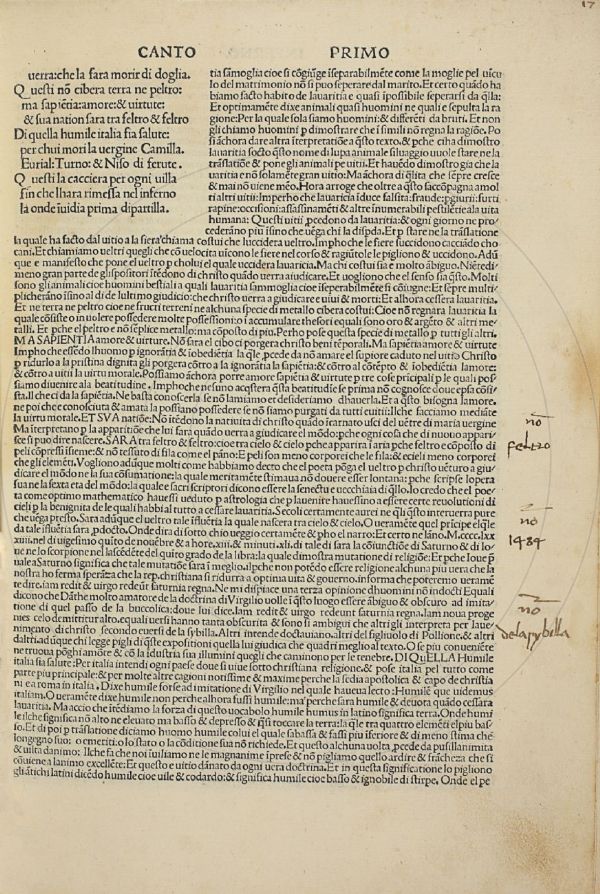 17
CANTO PRIMO
uerra:che la fara morir di doglia.
Questi nõ cibera terra ne peltro:
ma sapiẽtia:amore:& uirtute:
& sua nation sara tra feltro & feltro
Di quella humile italia fia salute:
per chui mori la uergine Camilla.
Eurial:Turno:& Niso di ferute.
Questi la cacciera per ogni uilla
fin che lhara rimessa nel inferno
la onde ĩuidia prima dipartilla.
tia sãmoglia cioe si cõgiũge ĩseparabilmẽte come la moglie pel uicu
lo del matrimonio nõ si puo seperare dal marito. Et certo quãdo ha
biamo facto habito de lauaritia e quasi ĩpossibile seperarsi da q̃lla:
Et optimamẽte dixe animali quasi huomini ne quali e sepulta la ra
gione:Per la quale sola siamo huomini:& differẽti da bruti. Et non
gli chiamo huomini p dimostrare che ĩ simili nõ regna la ragiõe. Po
si ãchora dare altra ĩterpretatiõe a q̃sto texto.& pche
lauaritia socto q̃sto nome di lupa animale siluaggio uuole stare ne la
traslatiõe & pone gli animali pe uitii. Et hauẽdo dimostro gia che la
uaritia e nõ solamẽte gran uitio:Ma ãchora di q̃lita che sẽpre cresce
& mai nõ uiene mẽo. Hora arroge che oltre a q̃sto saccõpagna amol
ti altri uitii. Impho che lauaritia iduce falsita:fraude:pgiurii:furti:
rapine:occisioni:assassinamẽti & altre ĩnumerabili pestilẽtie a la uita
humana: Questi uitii pcedono da lauaritia:& ogni giorno ne pro
cederãno piu ĩsino che uẽga chi la dispda. Et p stare ne la traslatione
la quale ha facto dal uitio a la fiera:chiama costui che luccidera ueltro. Impho che le fiere succidono cacciãdo cho
cani. Et chiamiamo ueltri quegli che cõ uelocita uicono le fiere nel corso & ragiũtole le pigliono & uccidono. Adũ
que e manifesto che pone el ueltro p cholui el quale uccidera lauaritia: Ma chi costui sia e molto ãbiguo. Niẽtedi
meno gran parte de gli spositori ĩtẽdono di christo quãdo uerra a iudicare. Et uogliono che el senso sia q̃sto. Molti
sono gli animali cioe huomini bestiali a quali lauaritia sammoglia cioe ĩseperabilmẽte si cõiugne:& sẽpre multi
plicherãno ĩsino al di de lultimo giudicio:che christo uerra a giudicare e uiui & morti:& alhora cessera lauaritia.
Et ne terra ne peltro cioe ne fructi terreni ne alchuna specie di metallo cibera costui:Cioe nõ regnara lauaritia la
quale cõsiste o in uolere possedere molte possessioni:o ĩ accumulare thesori equali sono oro & argẽto & altri me/
talli. Et pche el peltro e nõ sẽplice metallo:ma cõposto di piu. Perho pose questa specie di metallo p tutti gli altri.
MA SAPIENTIA amore & uirtute. Nõ sara el cibo ci porgera christo beni tẽporali. Ma sapiẽtia amore & uirtute
Impho che essẽdo lhuomo p ignorãtia & iobediẽtia la q̃le pcede da nõ amare el supiore caduto nel uitio Christo
p ridurlo a la pristina dignita gli porgera cõtro a la ignorãtia la sapiẽtia:& cõtro al cõtẽpto & iobediẽtia lamore:
& cõtro a uitii la uirtu morale. Possiamo ãchora porre amore sapiẽtia & uirtute p tre cose pricipali p le quali pos/
siamo diuenire a la beatitudine. Imphoche ne suno acq̃stera q̃sta beatitudie se prima nõ cognosce doue epsa cõsi/
sta. Il che ci da la sapiẽtia. Ne basta conoscerla se nõ lamiamo et desideriamo dhauerla. Et a q̃sto bisogna lamore.
ne poi che e conosciuta & amata la possiano possedere se nõ siamo purgati da tutti e uitii:il che facciamo mediãte
la uirtu morale. ET SVA natiõe: Nõ ĩtẽdono la natiuita di christo quãdo icarnato usci del uẽtre di maria uergine
Ma iterpretano p la apparitiõe che lui fara quãdo uerra a giudicare el mõdo:pche ogni cosa che di nuouo appari
sce si puo dire nascere. SARA tra feltro & feltro:cioe tra cielo & cielo pche apparira ĩ aria pche feltro e cõposto di
peli cõpressi ĩsieme:& nõ tessuto di fila come el pãno:E peli son meno corporei che le fila:& e cieli meno corporei
che gli elemẽti. Vogliono adũque molti come habbiamo decto che el poeta põga el ueltro p christo uẽturo a giu/
dicare el mõdo ne la sua cõsumatione:la quale meritamẽte stimaua nõ douere esser lontana:pche scripsono la
sua ne la sexta eta del mõdo:la quale e sacri scriptori dicono essere la senectu & ucchiaia di q̃llo. Io credo che el poe/
ta come optimo mathematico hauessi ueduto p astrologia che p lauenire hauessino a essere certe reuolutioni di
cieli p la benignita de le quali habbia al tutto a cessare lauaritia. Secoli certamente aurei ne q̃li q̃sto interuerra pure
che uẽga presto. Sara adũque el ueltro tale ĩfluẽtia la quale nascera tra cielo & cielo. O ueramẽte quel prĩcipe elq̃le
da tale ĩfluẽtia sara pdocto. Onde dira di sotto chio ueggio certamẽte & pho el narro:Et certo ne lãno. M.cccc.lxx
xiiii.nel di uigesimo quĩto de nouẽbre & a hore.xiii.& minuti.xli.di tale di sara la cõiunctiõe di Saturno & di Io/
ue ne lo scorpione nel lascẽdẽte del quito grado de la libra:la quale dimostra mutatione di religiõe:Et pche Ioue p
uale a Saturno significa che tale mutatiõe sara ĩ meglio. il pche non potẽdo essere religione alchuna piu uera che la
nostra ho ferma sperãza che la rep.christiana si ridurra a optima uita & gouerno.informa che poteremo ueramẽ
te dire.iam redit & uirgo redeũt saturnia regna. Ne mi dispiace una terza opinione dhuomini nõ indocti Equali
dicono che Dãthe molto amatore de la doctrina di Virgilio uolle ĩ q̃sto luogo essere ãbiguo & obscuro ad imita/
tione di quel passo de la buccolica:doue lui dice.Iam redit & uirgo redeunt saturnia regna.Iam noua proge
nies celo demittitur alto. equali uersi hanno tanta obscurita & sono si ambigui che altri gli interpreta per laue/
nimẽto di christo secondo euersi de la sybilla. Altri intende doctauiano.altri del figliuolo di Pollione.& altri
daltri.adũque chi legge pigli di q̃ste expositioni quella lui giudica che quadri meglio al texto. O se piu conueniẽte
ne truoua põghi amore & cõ la industria sua illumini quegli che caminono per le tenebre. DI QVELLA Humile
italia fia salute:Per italia intendi ogni paese doue si uiue sotto christiana religione.& pose italia pel tutto come
parte piu principale:& per molte altre cagioni norissime & maxime perche la sedia apostolica & capo de christia
ni e a roma in italia. Dixe humile forse ad imitatione di Virgilio nel quale haueua lecto:Humilẽ que uidemus
italiam. O ueramẽte dixe humile non perche alhora fussi humile:ma perche sara humile & deuota quãdo cessera
lauaritia. Ma accio che itẽdiamo la forza di questo uocabolo humile humus in latino significa terra. Onde humi
le il che significa nõ alto ne eleuato ma basso & depresso & q̃si toccare la terra:la q̃le tra quattro elemẽti el piu bas/
so. Et di poi p traslatione diciamo huomo humile colui el quale sabassa & fassi piu ĩferiore & di meno stima che
longegno suo: o emeriti:o lo stato o la cõditione sua nõ richiede. Et questo alchuna uolta pcede da pusillanimita
& uitia danimo: Il che fa che noi ĩuiliamo ne le magnanime ĩprese & nõ pigliamo quello ardire & frãcheza che si
cõuiene a lanimo excellẽte:Et questo e uitio dãnato da ogni uera doctrina. Et in questa significatione lo pigliono
gli ãtichi latini dicẽdo humile cioe uile & codardo:& significa humile cioe basso & ignobile di stirpe. Onde el pe
nõ
feltro
nõ
1484
nõ
de la sybilla